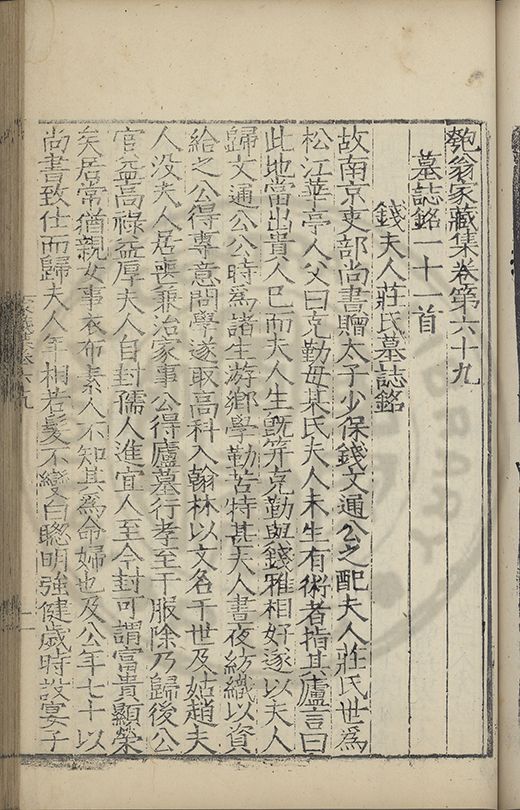 匏翁家藏集卷第六十九
墓誌銘一十一首
錢夫人莊氏墓誌銘
故南京吏部尚書贈太子少保錢文通公之配夫人莊氏世為
松江華亭人父曰克勤母某氏夫人未生有術者指其廬言曰
此地當出貴人已而夫人生既笄克勤與錢雅相好遂以夫人
歸文通公公時為諸生游鄉學勤苦特甚夫人晝夜紡織以資
給之公得專意問學遂取高科入翰林以文名于世及姑趙夫
人没夫人居喪兼治家事公得廬墓行孝至于服除乃歸後公
官益高祿益厚夫人自封孺人進宜人至今封可謂富貴顯榮
矣居常猶親女事衣布素人不知其為命婦也及公年七十以
尚書致仕而歸夫人年相若髮不變白聰明強健歲時設宴子